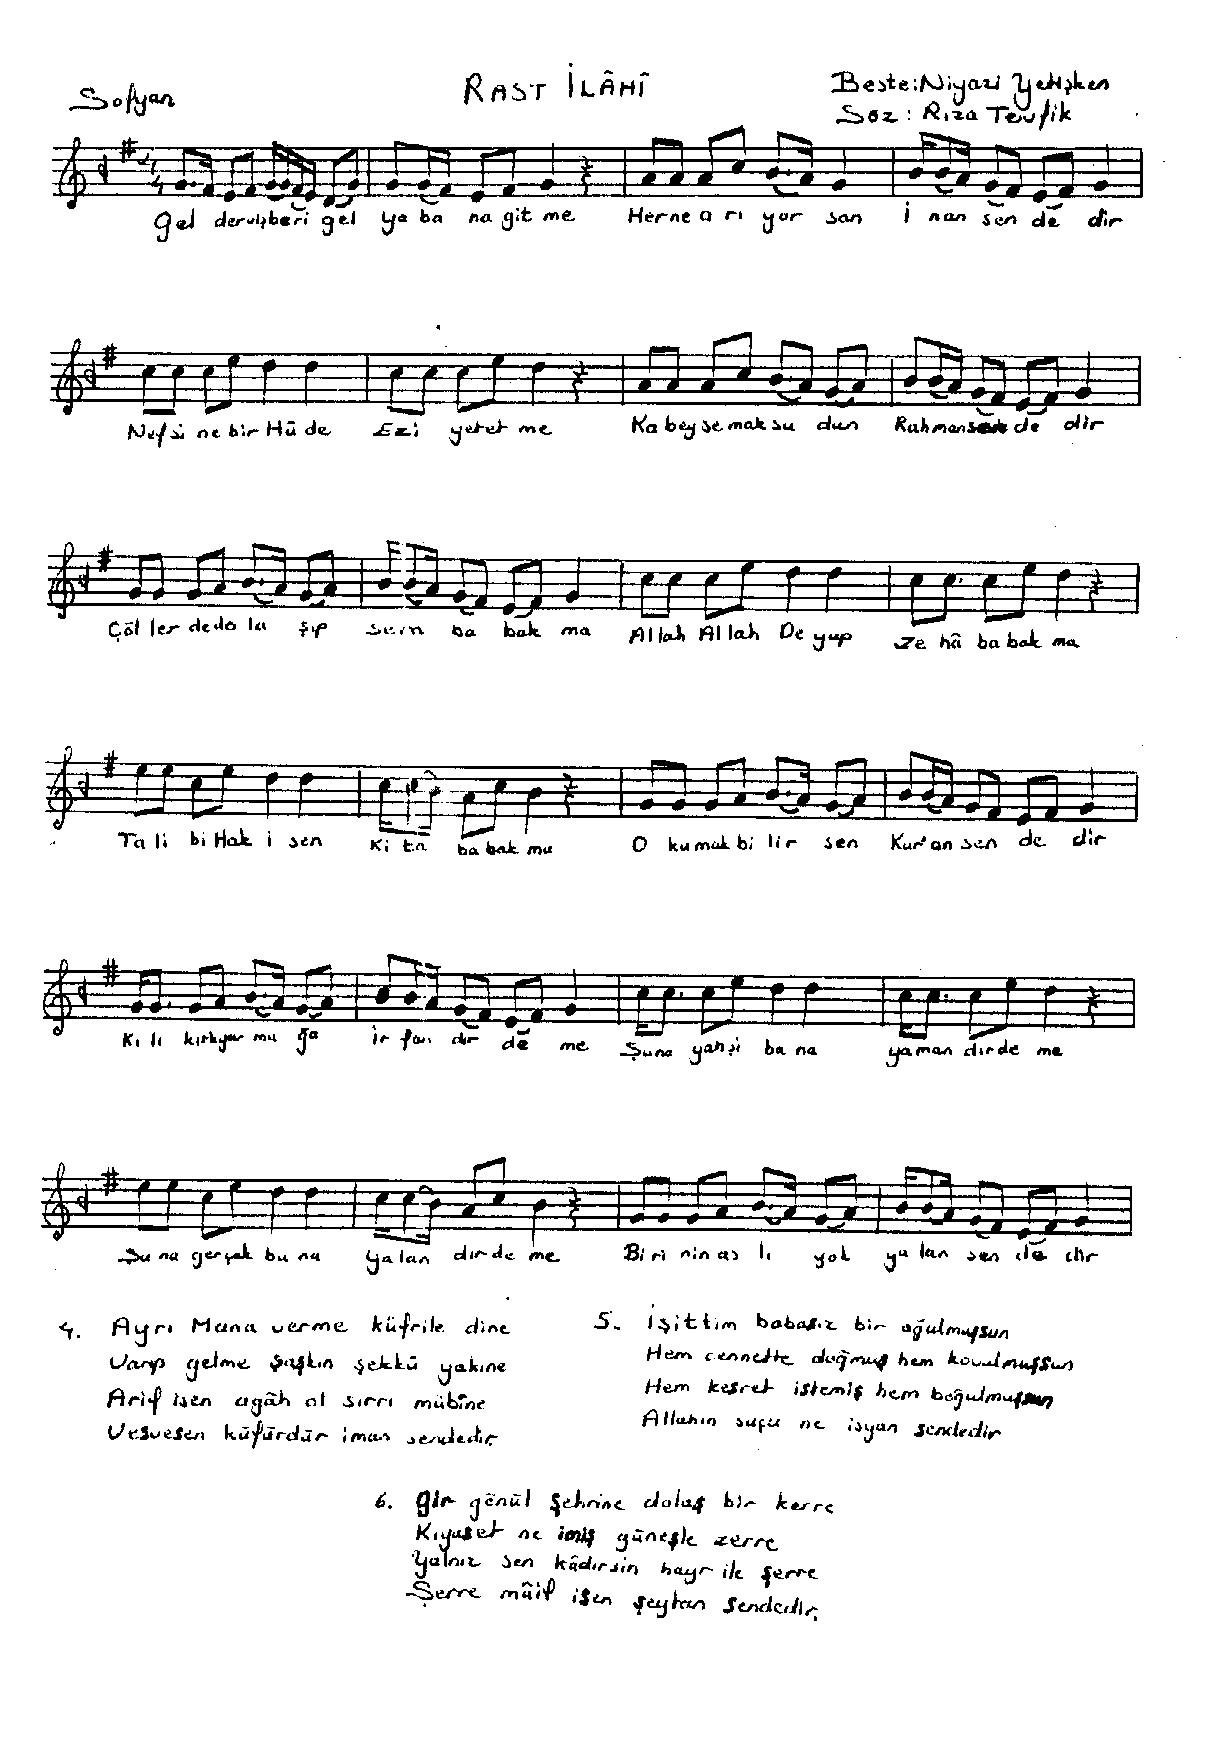 Sofyan
RAST İLÂHÎ
Beste: Niyazi Yetişken
Söz : Rıza Tevfik
4
4
Gel dervişberi gel ya ba na git me Her ne a rı yor san İ nan sen de dir
Nefsi ne bir Hû de Ezi yet et me Ka bey se mak su dun Rahman sen de dir
Çöl ler de do la şıp se rın ba bak ma Allah Allah De yup Ze hâ ba bak ma
Ta li bi Hak i sen Ki ta ba bak ma O ku mak bi lir sen Kur'an sen de dir
Kı lı kırkyar ma ğa ir fan dır de me Şuna yahşi ba na yaman dır de me
Şu na gerçek bu na Ya lan dır de me Bi ri nin as lı yok ya lan sen de dir
4. Ayrı Mana verme küfrile dine
Varıp gelme şaşkın şekkü yakine
Arif isen agâh ol sırrı mübîne
Vesvesen küfürdür iman sendedir.
5. İşittim babasız bir oğulmuşsun
Hem cennette doğmuş hem kovulmuşsun
Hem kesret istemiş hem boğulmuşsun
Allahın suçu ne isyan sendedir
6. Gir gönül şehrine dolaş bir kerre
Kıyaset ne imiş güneşle zerre
Yalnız sen kâdirsin hayr ile şerre
Şerre mâil isen şeytan sendedir.